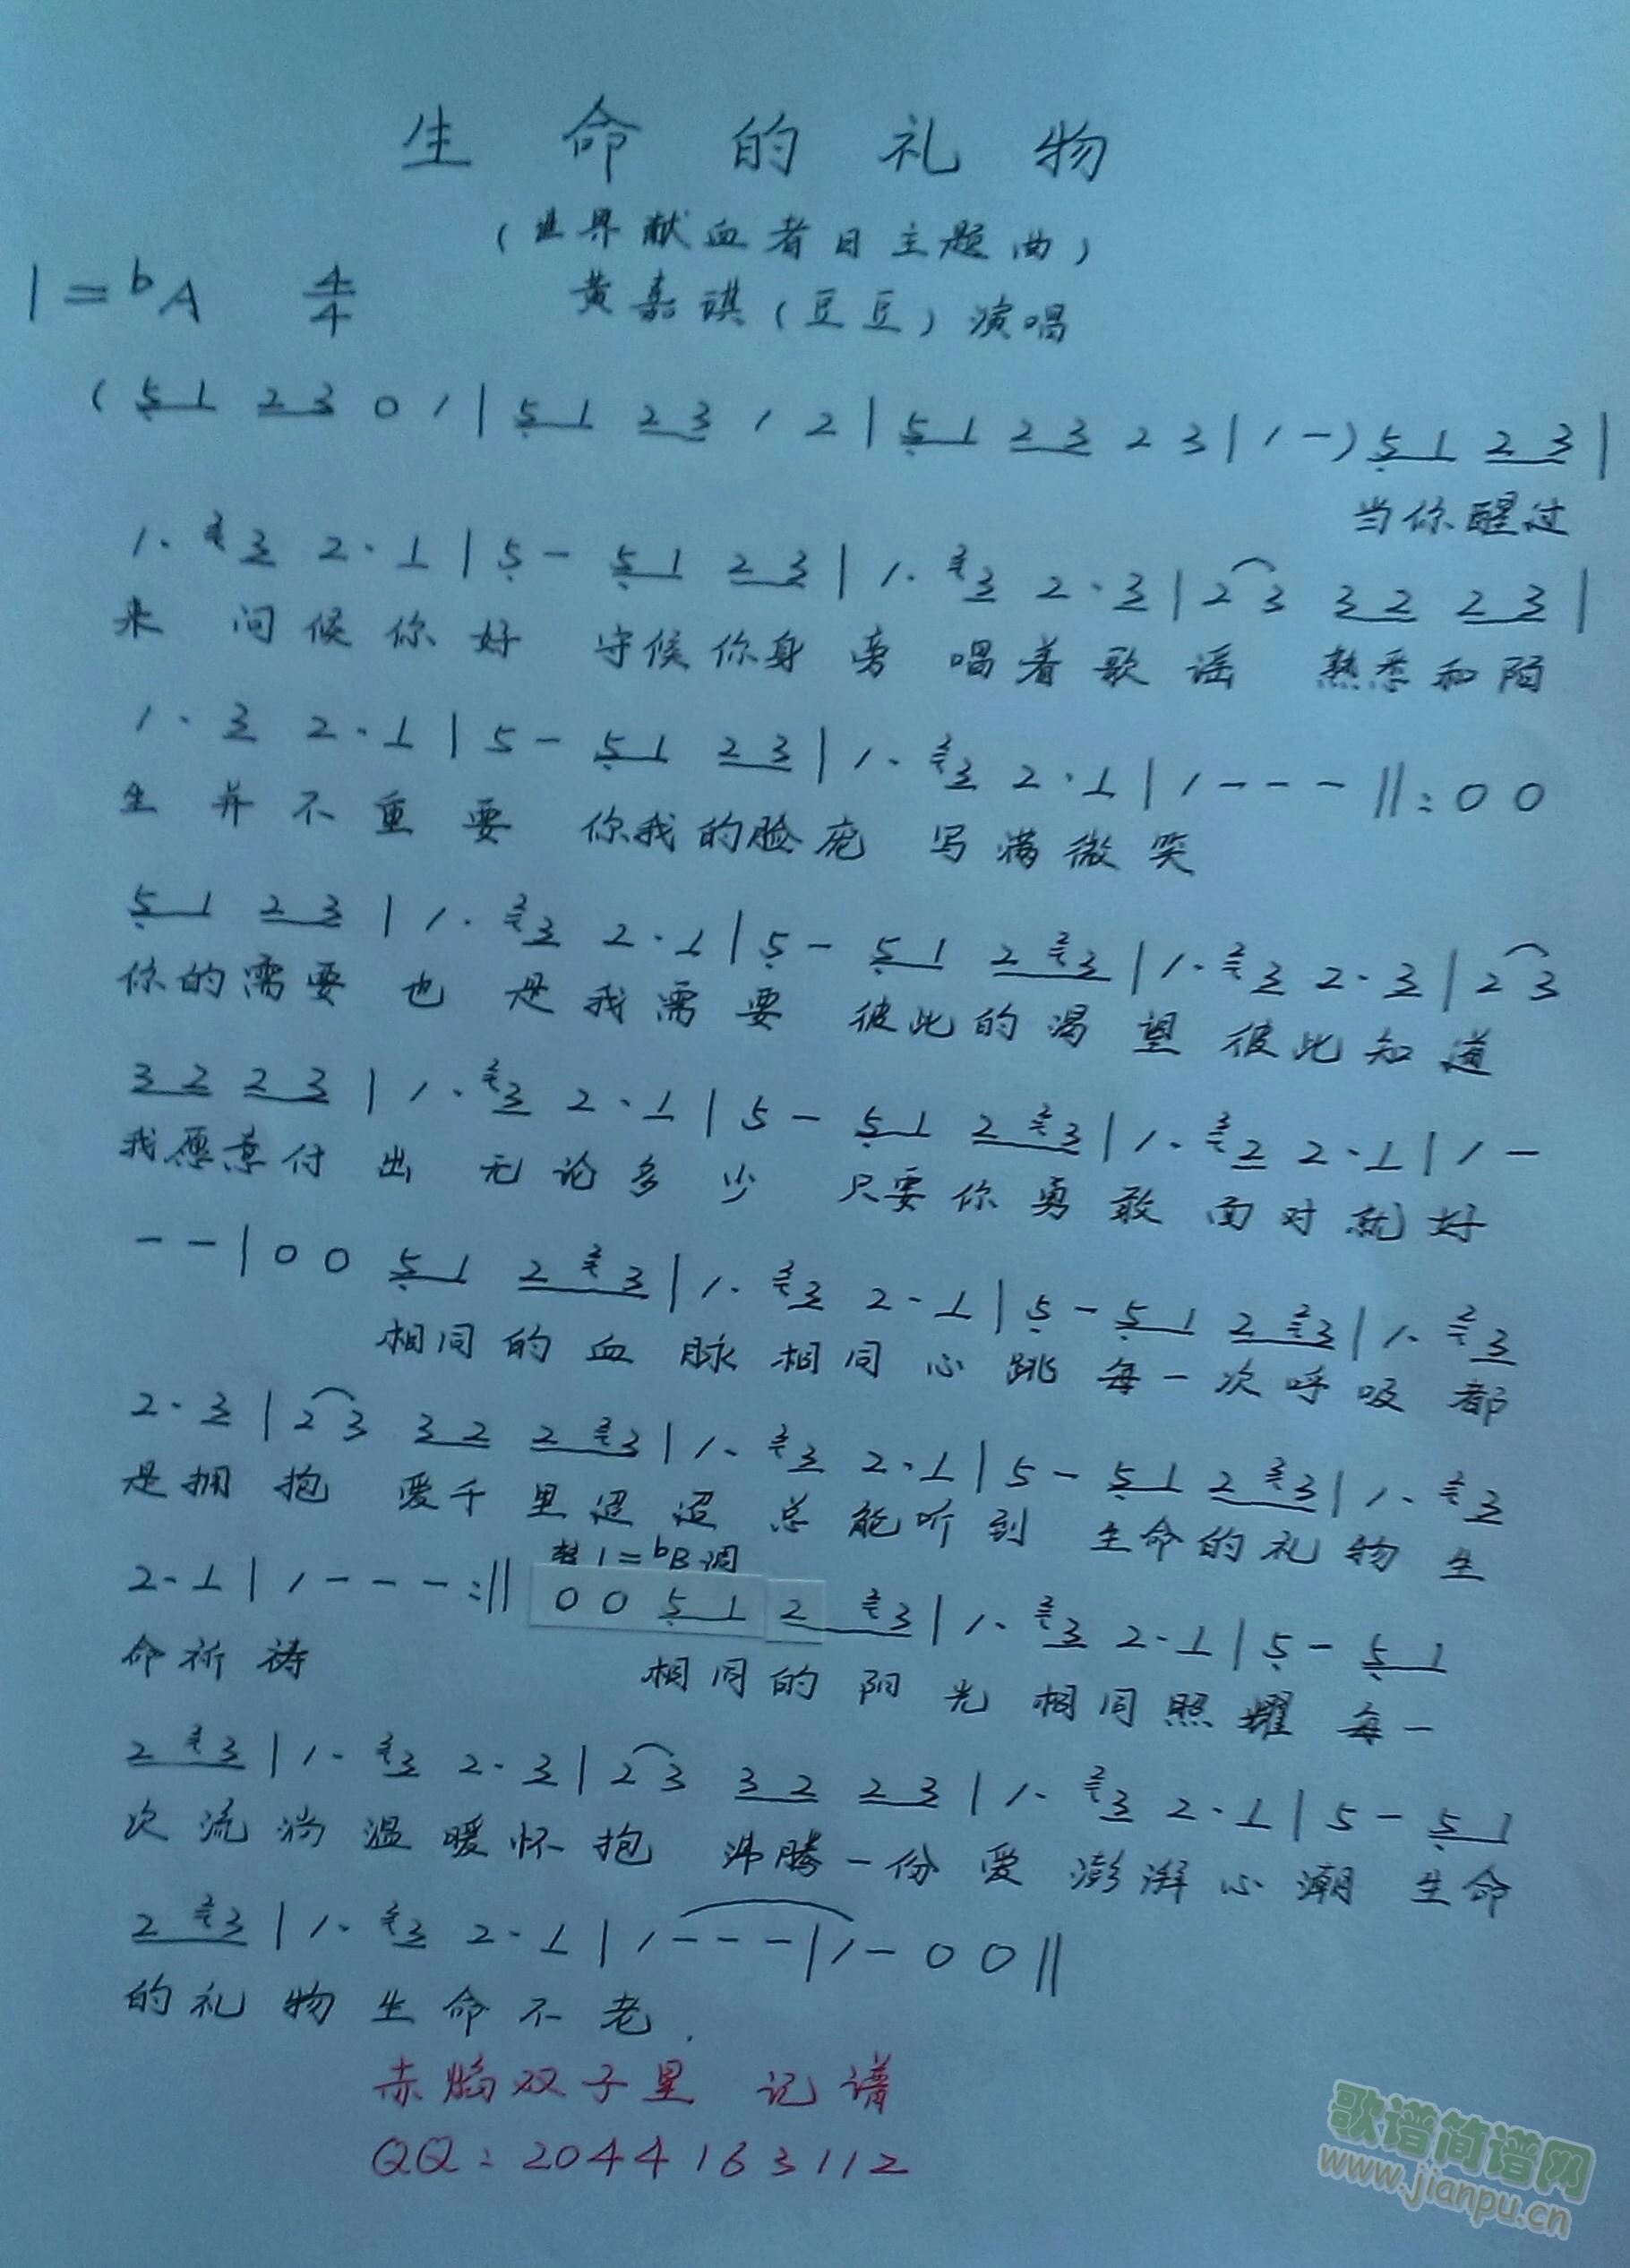 生命的礼物
(世界献血者日主题曲)
1=bA 4/4 黄嘉祺(豆豆)演唱
(5 1 2 3 0 1 | 5 1 2 3 1 2 | 5 1 2 3 2 3 | 1 -) 5 1 2 3 |
当你醒过
1. 2 3 2. 1 | 5 - 5 1 2 3 | 1. 2 3 2. 3 | 2 3 3 2 2 3 |
来 问候你好 守候你身旁 唱着歌谣 熟悉和陌
1. 3 2. 1 | 5 - 5 1 2 3 | 1. 2 3 2. 1 | 1 - - - ‖: 0 0
生并不重要 你我的脸庞 写满微笑
5 1 2 3 | 1. 2 3 2. 1 | 5 - 5 1 2 2 3 | 1. 2 3 2. 3 | 2 3
你的需要也是我需要 彼此的渴望彼此知道
3 2 2 3 | 1. 2 3 2. 1 | 5 - 5 1 2 2 3 | 1. 3 2 2. 1 | 1 -
我愿意付出无论多少 只要你勇敢面对就好
- - | 0 0 5 1 2 2 3 | 1. 2 3 2. 1 | 5 - 5 1 2 2 3 | 1. 2 3
相同的血脉相同心跳 每一次呼吸都
2. 3 | 2 3 3 2 2 2 3 | 1. 2 3 2. 1 | 5 - 5 1 2 2 3 | 1. 2 3
是拥抱 爱千里迢迢 总能听到 生命的礼物生
转1=bB调
2. 1 | 1 - - - :‖ 0 0 5 1 2 2 3 | 1. 2 3 2. 1 | 5 - 5 1
命祈祷 相同的阳光相同照耀 每一
2 2 3 | 1. 2 3 2. 3 | 2 3 3 2 2 3 | 1. 2 3 2. 1 | 5 - 5 1
次流淌温暖怀抱 沸腾一份爱澎湃心潮 生命
2 2 3 | 1. 2 3 2. 1 | 1 - - - | 1 - 0 0 ‖
的礼物生命不老.
赤焰双子星 记谱
QQ:2044163112
歌谱简谱网
www.jianpu.cn